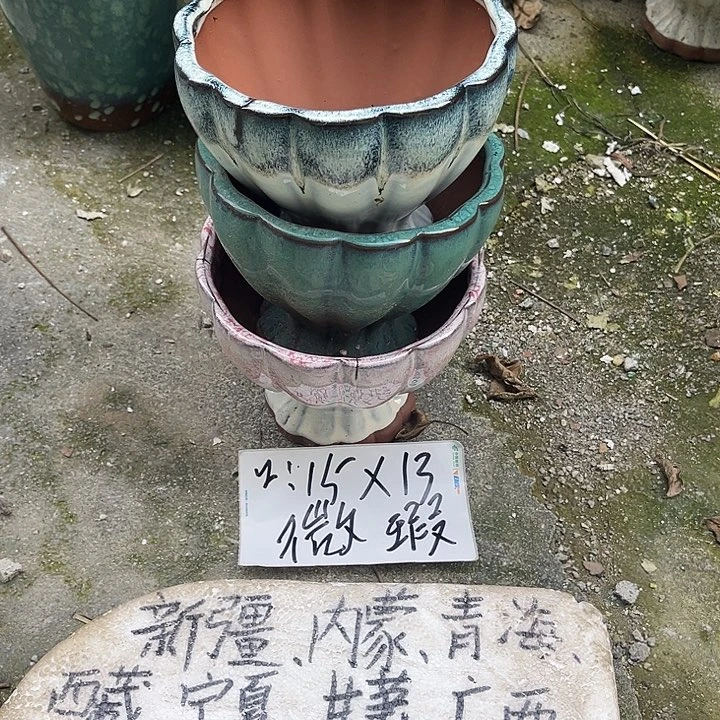 小:15×13
微瑕
新疆、内蒙、青海、
西藏 宁夏 甘肃 广西